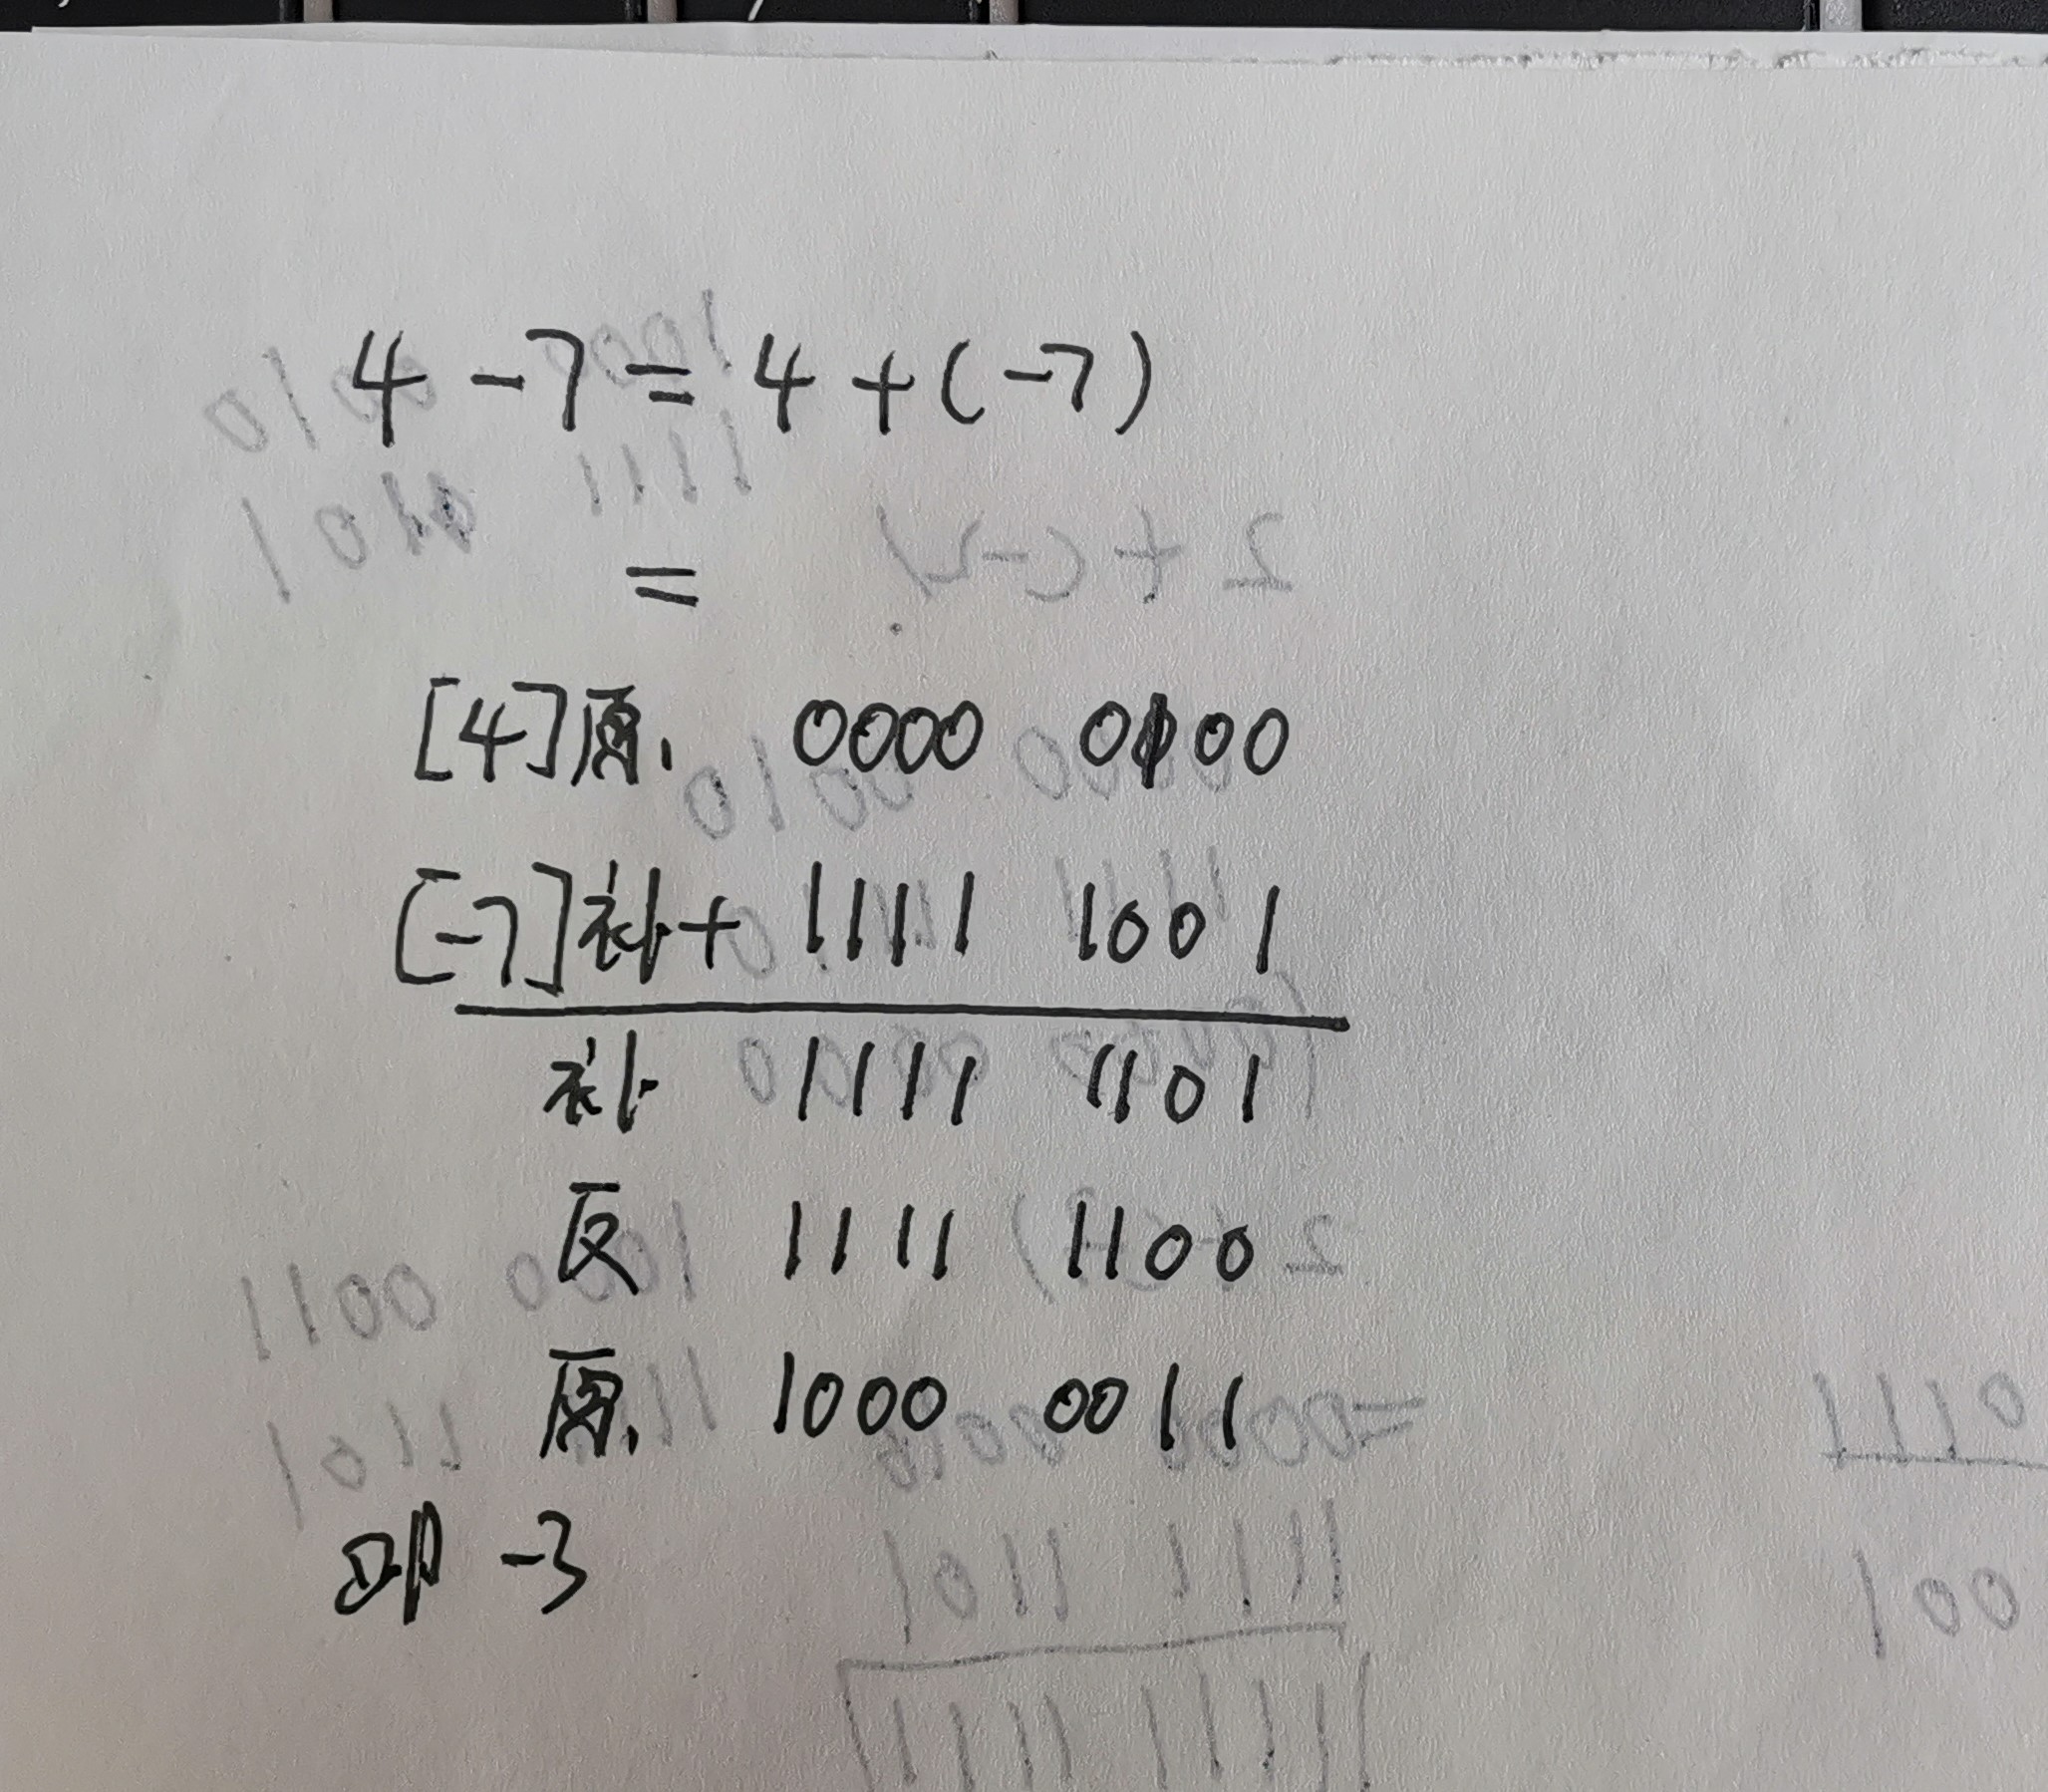 4 - 7 = 4 + (-7)
=
[4]原 0000 0100
[-7]补 + 1111 1001
补 1111 1101
反 1111 1100
原 1000 0011
即 -3